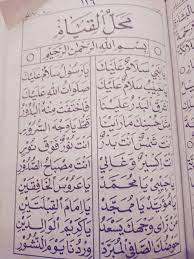 ١١٦
مَحَلُّ الْقِيَامِ
بِسْمِ اللهِ الرَّحْمٰنِ الرَّحِيْمِ
يَا نَبِيْ سَلَامٌ عَلَيْكَ يَا رَسُوْلْ سَلَامٌ عَلَيْكَ
يَا حَبِيْبْ سَلَامٌ عَلَيْكَ صَلَوَاتُ اللهِ عَلَيْكَ
أَشْرَقَ الْبَدْرُ عَلَيْنَا فَاخْتَفَتْ مِنْهُ الْبُدُوْرُ
مِثْلَ حُسْنِكَ مَا رَأَيْنَا قَطُّ يَا وَجْهَ السُّرُوْرِ
أَنْتَ شَمْسٌ أَنْتَ بَدْرٌ أَنْتَ نُوْرٌ فَوْقَ نُوْرٍ
أَنْتَ إِكْسِيْرٌ وَغَالِيْ أَنْتَ مِصْبَاحُ الصُّدُوْرِ
يَا حَبِيْبِيْ يَا مُحَمَّدْ يَا عَرُوْسَ الْخَافِقَيْنِ
يَا مُؤَيَّدْ يَا مُمَجَّدْ يَا إِمَامَ الْقِبْلَتَيْنِ
مَنْ رَأَى وَجْهَكَ يَسْعَدْ يَا كَرِيْمَ الْوَالِدَيْنِ
حَوْضُكَ الصَّافِى الْمُبَرَّدْ وِرْدُنَا يَوْمَ النُّشُوْرِ